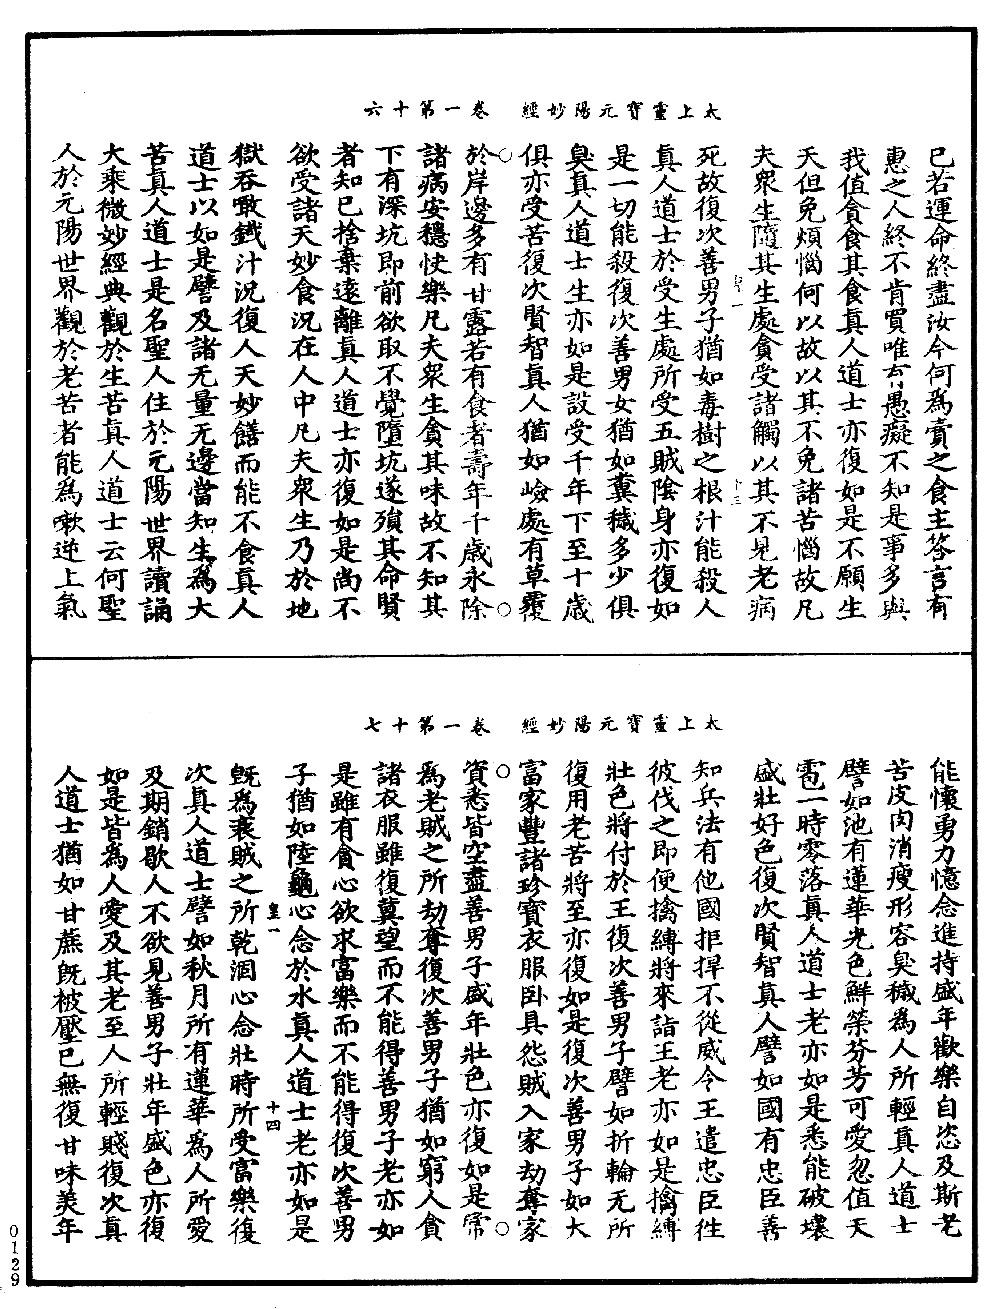 太上靈寶元陽妙經　卷一第十六
已若運命終盡汝今何為賣之食主答言有
惠之人終不肯買唯有愚癡不知是事多與
我值貪食其食真人道士亦復如是不願生
天但免煩惱何以故以其不免諸苦惱故凡
夫眾生隨其生處貪受諸觸以其不見老病
十三
死故復次善男子猶如毒樹之根汁能殺人
真人道士於受生處所受五賊陰身亦復如
是一切能殺復次善男女猶如糞穢多少俱
臭真人道士生亦如是設受千年下至十歲
俱亦受苦復次賢智真人猶如嶮處有草覆
於岸邊多有甘露若有食者壽年千歲永除
諸病安穩快樂凡夫眾生貪其味故不知其
下有深坑即前欲取不覺墮坑遂殞其命賢
者知已捨棄遠離真人道士亦復如是尚不
欲受諸天妙食況在人中凡夫眾生乃於地
獄吞噉鐵汁況復人天妙饍而能不食真人
道士以如是譬及諸无量无邊當知生為大
苦真人道士是名聖人住於元陽世界讀誦
大乘微妙經典觀於生苦真人道士云何聖
人於元陽世界觀於老苦者能為嗽逆上氣
太上靈寶元陽妙經　卷一第十七
能懷勇力憶念進持盛年歡樂自恣及斯老
苦皮肉消瘦形容臭穢為人所輕真人道士
譬如池有蓮華光色鮮榮芬芳可愛忽值天
雹一時零落真人道士老亦如是悉能破壞
盛壯好色復次賢智真人譬如國有忠臣善
知兵法有他國拒捍不從威令王遣忠臣往
彼伐之即便擒縛將來詣王老亦如是擒縛
壯色將付於王復次善男子譬如折輪无所
復用老苦將至亦復如是復次善男子如大
富家豐諸珍寶衣服臥具怨賊入家劫奪家
資悉皆空盡善男子盛年壯色亦復如是常
為老賊之所劫奪復次善男子猶如窮人貪
諸衣服雖復冀望而不能得善男子老亦如
是雖有貪心欲求富樂而不能得復次善男
子猶如陸龜心念於水真人道士老亦如是
皇一　十四
既為衰賊之所乾涸心念壯時所受富樂復
次真人道士譬如秋月所有蓮華為人所愛
及期銷歇人不欲見善男子壯年盛色亦復
如是皆為人愛及其老至人所輕賤復次真
人道士猶如甘蔗既被壓已無復甘味美年
0129